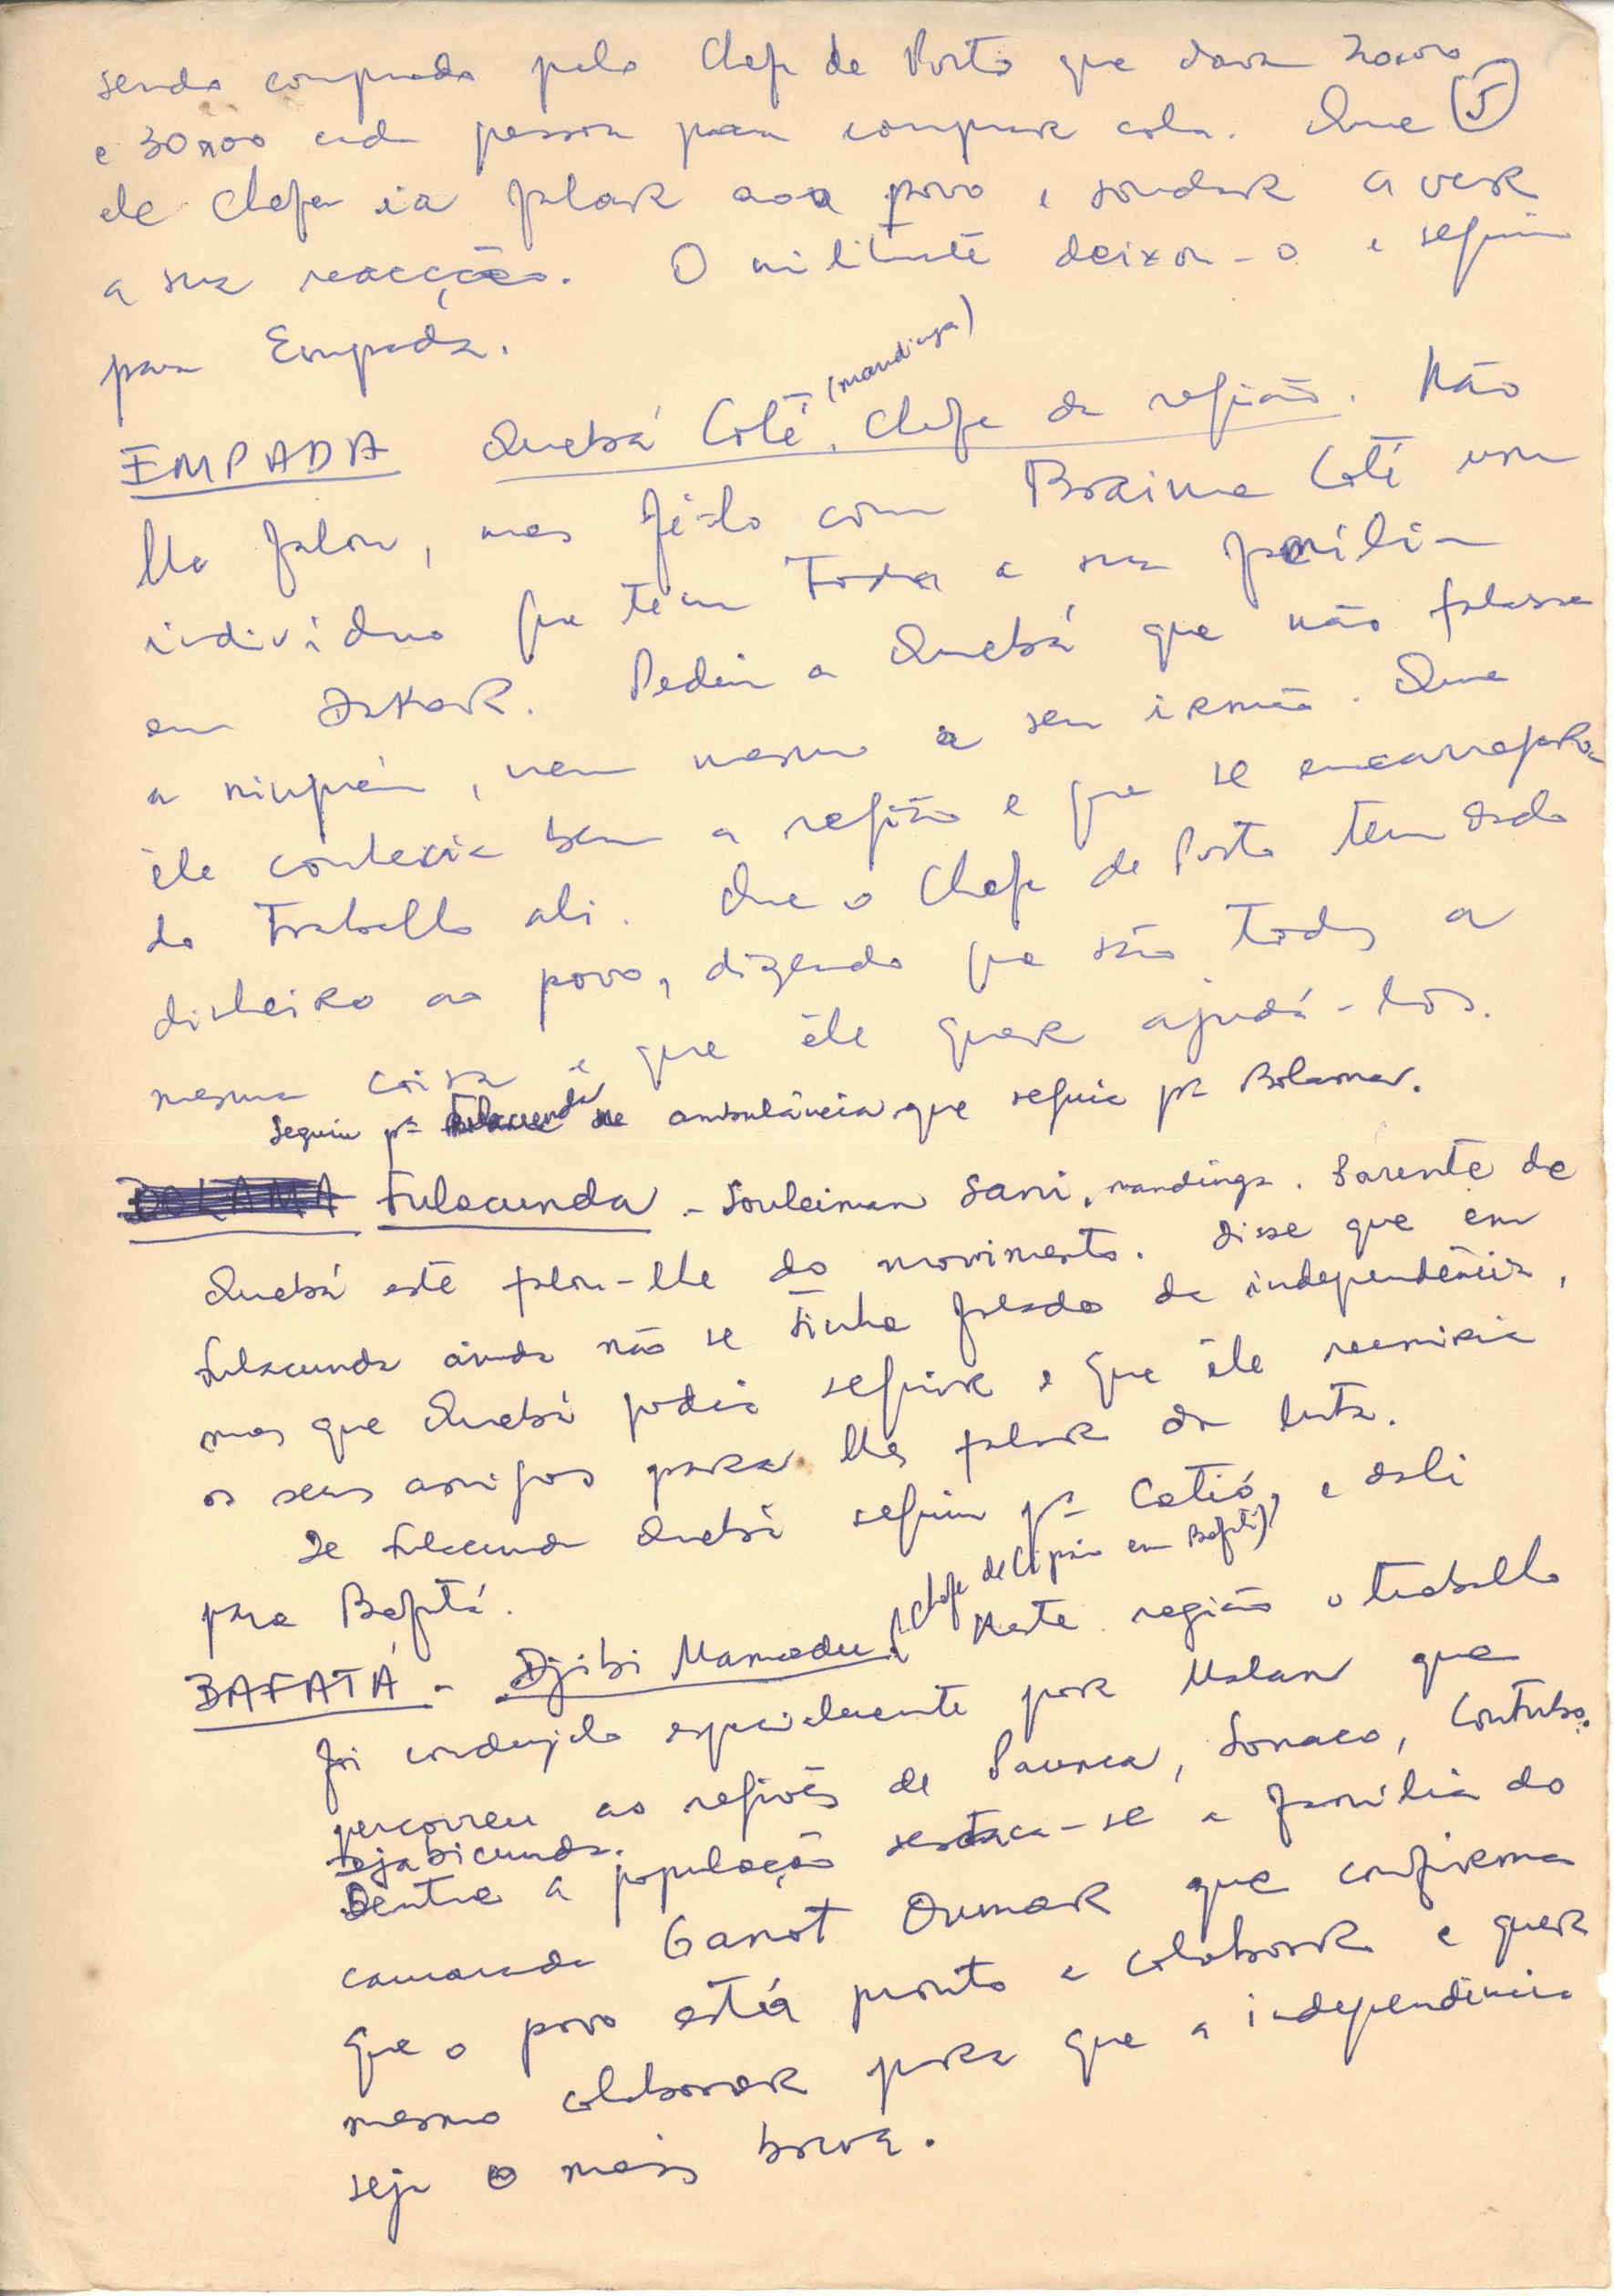 sendo comprado pelo Chefe de Posto que dava 20$00
e 30$00 cada pessoa para comprar cola. Que (5)
ele Chefe ia falar ao povo e sondar a ver
a sua reacção. O militante deixou-o e seguiu
para Empada.
EMPADA Quebá Coté, (mandinga) Chefe da região. Não
lhe falou, mas fê-lo com Braima Coté um
indivíduo que tem toda a sua família
em Dakar. Pediu a Quebá que não falasse
a ninguém, nem mesmo a seu irmão. Que
êle conhecia bem a região e que se encarregara
do trabalho ali. Que o Chefe de Posto tem dado
dinheiro ao povo, dizendo que são todos a
mesma coisa e que êle quer ajudá-los.
Seguiu pª Fulacunda na ambulância que seguia pª Bolama.
BOLAMA Fulacunda - Souleiman Sani, mandinga. Parente de
Quebá este falou-lhe do movimento. Disse que em
Fulacunda ainda não se tinha falado de independência,
mas que Quebá podia seguir e que êle reuniria
os seus amigos para lhes falar da luta.
De Fulacunda Quebá seguiu pª Catió, e dali
para Bafatá.
BAFATÁ - Djibi Mamadu (chefe de Cipaio em Bafatá) Nesta região o trabalho
foi conduzido especialmente por Malan que
percorreu as regiões de Paunca, Sonaco, Contubo,
Djabicunda.
Dentre a população destaca-se a família do
camarada Ganot Oumar que confirma
que o povo está pronto a colaborar e quer
mesmo colaborar para que a independência
seja o mais breve.